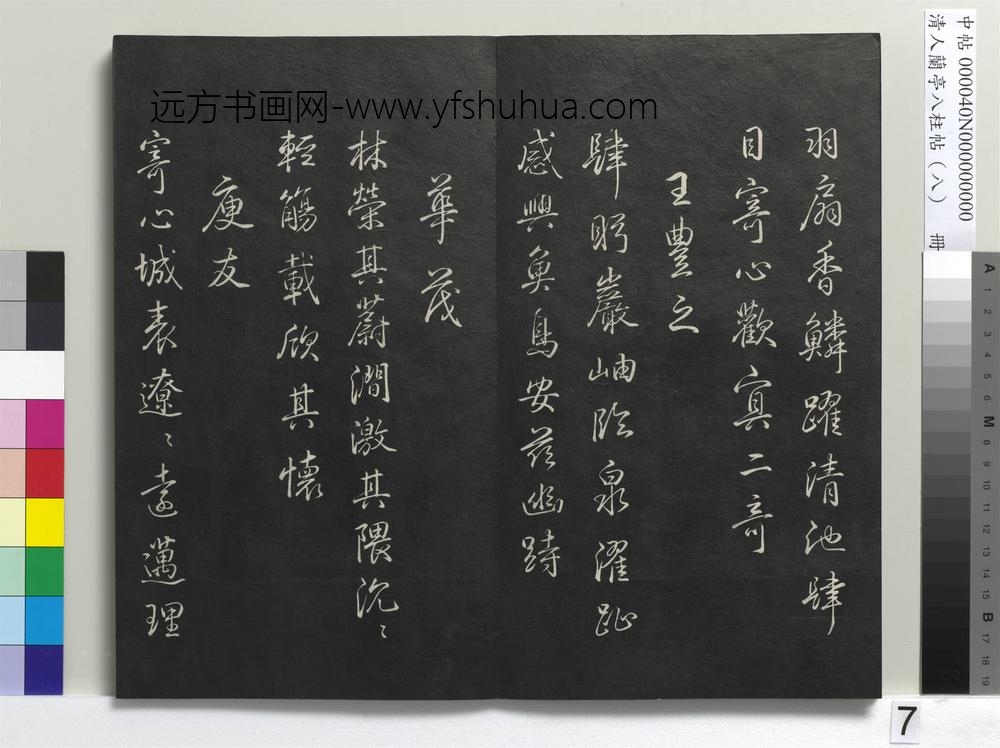 羽扇香鱗躍清池肆
目寄心歡冥二奇
王豐之
肆眄巖岫臨泉濯趾
感興魚鳥安茲幽跱
華茂
林榮其蔚澗激其隈汎〻
輕觴載欣其懷
庾友
寄心城表遼〻遠邁理
远方书画网-www.yfshuhua.com
中帖 000040N000000000
清人蘭亭八柱帖（八） 冊
A 1 2 3 4 5 6 M 8 9 10 11 12 13 14 15 B 17 18 19
7